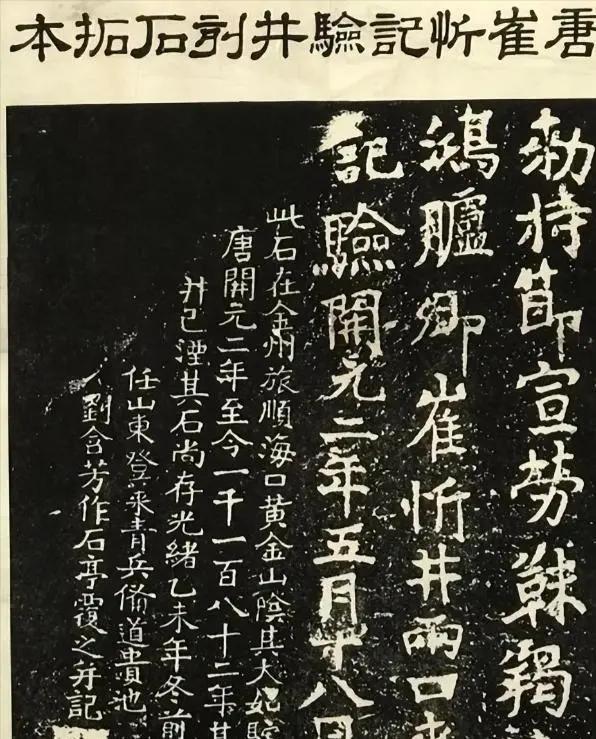 唐崔忻記驗井刻石拓本
勅持節宣勞靺鞨
鴻臚卿崔忻井兩口永
記驗開元二年五月十八日
此石在金州旅順海口黃金山陰其大如
唐開元二年至今一千一百八十二年其
井已湮其石尚存光緒乙未年冬前
任山東登萊青兵備道貴池
劉含芳作石亭覆之并記